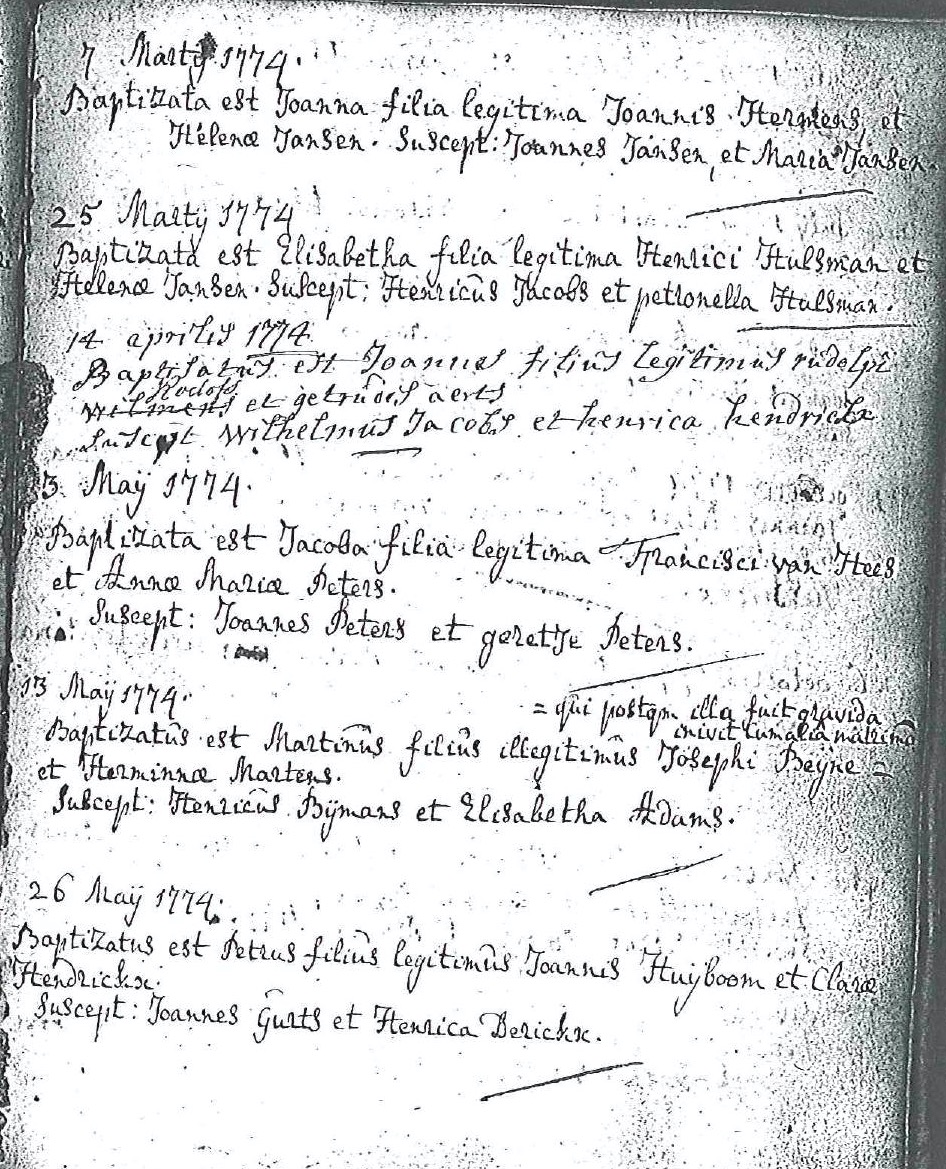 7 Martÿ 1774.
Baptizata est Joanna filia legitima Joannis Hermens, et
Helenæ Jansen. Suscept: Joannes Jansen, et Maria Jansen.
25 Martÿ 1774
Baptizata est Elisabetha filia legitima Henrici Hulsman et
Helenæ Jansen. Suscept: Henricus Jacobs et petronella Hulsman.
14 aprilis 1774
Baptisatus est Joannes filius legitimus rudolpi
Rodofs
wilmens et getrudis aerts
suscept wilhelmus Jacobs et henrica hendrickx
3 Maÿ 1774.
Baptizata est Jacoba filia legitima Francisci van Hees
et Annæ Mariæ Peters.
Suscept: Joannes Peters et geretje Peters.
13 Maÿ 1774.
= qui postqm illa fuit gravida
inivit cum alia matrimo
Baptizatus est Martinus filius illegitimus Josephi Beyne =
et Herminnæ Martens.
Suscept: Henricus Bÿmans et Elisabetha Adams.
26 Maÿ 1774.
Baptizatus est Petrus filius legitimus Joannis Huijboom et Claræ
Hendrickx.
Suscept: Joannes Gurts et Henrica Derickx.